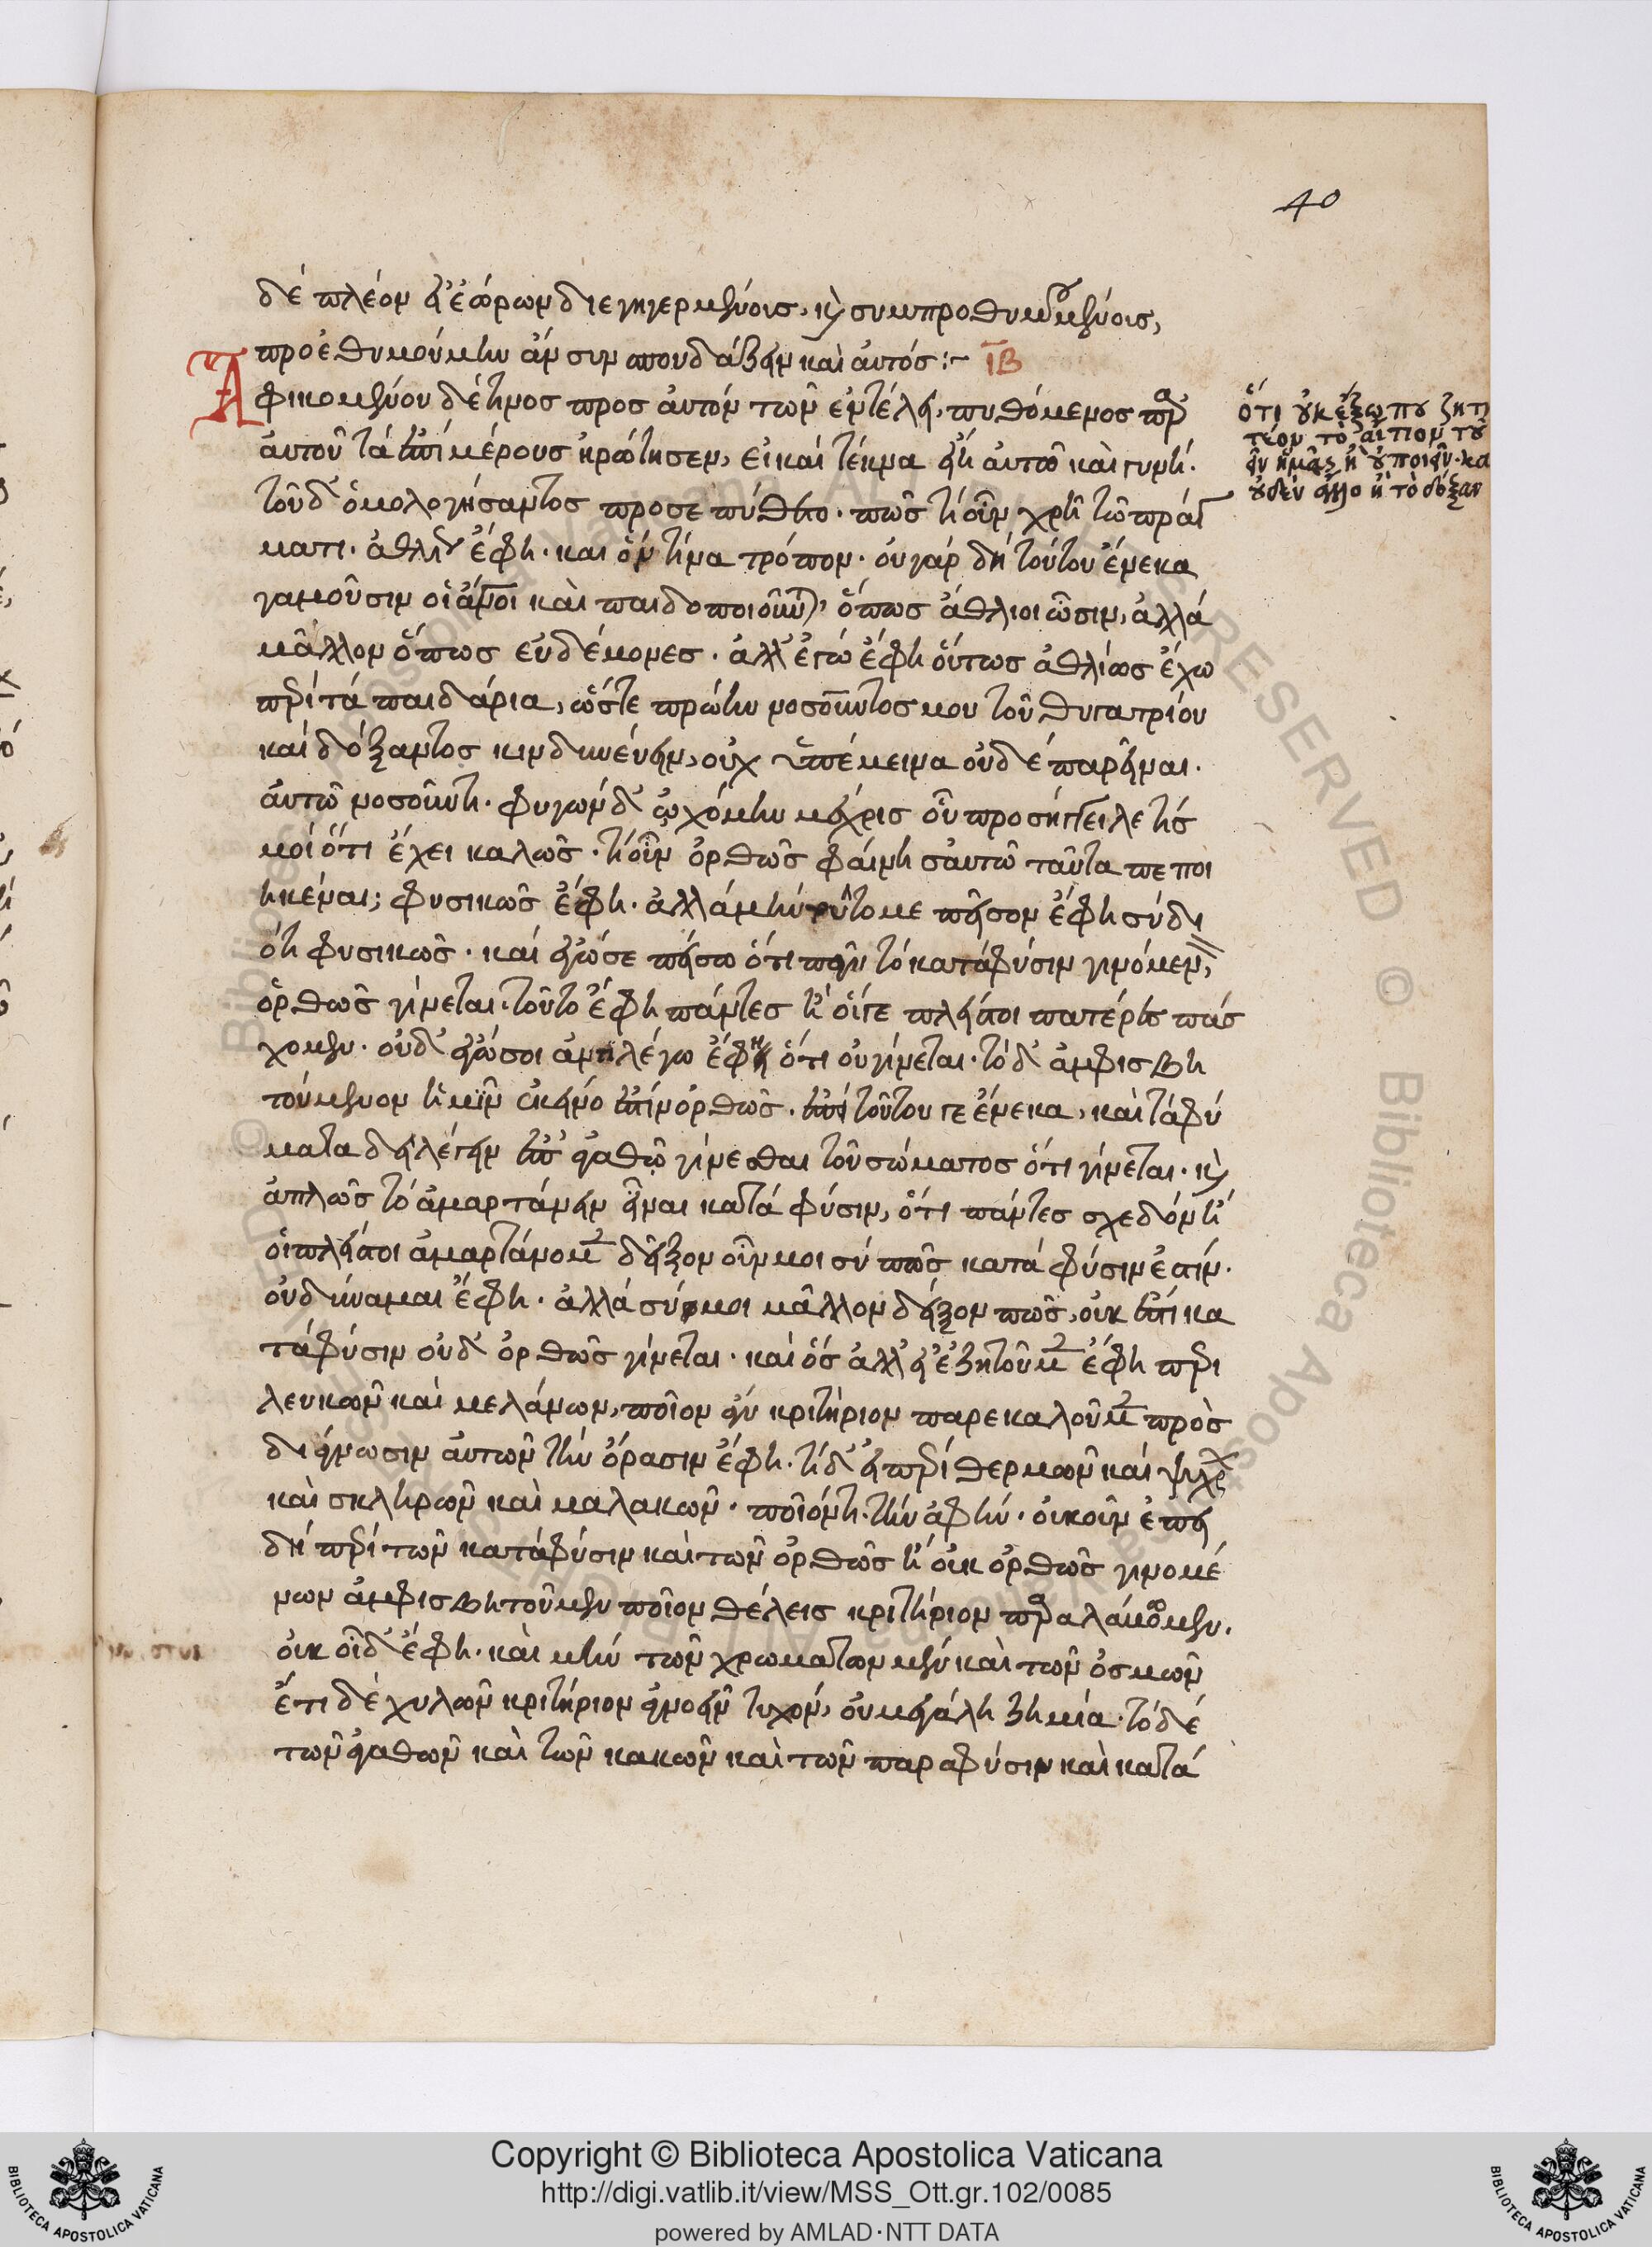 40
δὲ πλέον εἰ ἑώρων διεγηγερμένοις, καὶ συμπροθυμουμένοις,
προεθυμούμην ἂν συμσπουδάζειν καὶ αὐτός :~ ΙΒ
Ἀφικομένου δέ τινος προς αὐτόν τῶν ἐν τέλει, πυθόμενος παρ'
αὐτοῦ τὰ ἐπὶ μέρους ἠρώτησεν, εἰ καὶ τέκνα εἴη αὐτῶ καὶ γυνή.
τοῦ δ' ὁμολογήσαντος προσεπύθετο. πῶς τί οὖν χρῆ τῶ πράγ
ματι. ἀθλίως ἔφη. και ὃν τίνα τρόπον. οὐ γὰρ δὴ τούτου ἕνεκα
γαμοῦσιν οἱ ἄνθρωποι καὶ παιδοποιοῦνται, ὅπως ἄθλιοι ὦσιν, ἀλλὰ
μᾶλλον ὅπως εὐδαίμονες. ἀλλ' ἐγώ ἔφη οὕτως ἀθλίως ἔχω
περὶ τὰ παιδάρια, ὥστε πρώην νοσοῦντος μου τοῦ θυγατρίου
καὶ δόξαντος κινδυνεύειν, οὐχ ὑπέμεινα οὐδὲ παρεῖναι.
αὐτῶ νοσοῦντι. φυγὼν δ' ὠχόμην μέχρις οὗ προσήγγειλε τίς
μοι ὅτι ἔχει καλῶς. τί οὖν ὀρθῶς φαίνη σαυτῶ ταῦτα πεποι
ηκέναι; φυσικῶς ἔφη. ἀλλὰ μὴν τοῦτο με πεῖσον ἔφη σὺ δι
ότι φυσικῶς. καὶ ἐγώ σε πείσω ὅτι πᾶν τὸ κατὰ φύσιν γινόμενον,
ὀρθῶς γίνεται. τοῦτο ἔφη πάντες ἢ οἵ γε πλεῖστοι πατέρες πάσ
χομεν. οὐδ' ἐγώ σοι ἀντιλέγω ἔφη ὅτι οὐ γίνεται. τὸ δ' ἀμφισβη
τούμενον ἡμῖν ἐκεῖνό ἐστιν ὀρθῶς. ἐπεὶ τούτου γε ἕνεκα, καὶ τὰ φύ
ματα δεῖ λέγειν ἐπ' ἀγαθῶ γίνεσθαι τοῦ σώματος ὅτι γίνεται. καὶ
ἁπλῶς τὸ ἁμαρτάνειν εἶναι κατὰ φύσιν, ὅτι πάντες σχεδὸν ἢ
οἱ πλεῖστοι ἁμαρτάνομεν δεῖξον οὖν μοι σὺ πῶς κατὰ φύσιν ἐστίν.
οὐ δύναμαι ἔφη. ἀλλὰ σύ μοι μᾶλλον δεῖξον πῶς, οὐκ ἔστι κα
τὰ φύσιν οὐδ' ὀρθῶς γίνεται. καὶ ὃς ἀλλ' εἰ ἐζητοῦμεν ἔφη περὶ
λευκῶν καὶ μελάνων, ποῖον ἂν κριτήριον παρεκαλοῦμεν πρὸς
διάγνωσιν αὐτῶν τὴν ὅρασιν ἔφη. τί δ' εἰ περὶ θερμῶν καὶ ψυχρῶν
καὶ σκληρῶν καὶ μαλακῶν. ποῖόν τι. τὴν ἁφήν. οὐκοῦν ἐπει
δὴ περὶ τῶν κατὰ φύσιν καὶ τῶν ὀρθῶς ἢ οὐκ ὀρθῶς γινομέ
νων ἀμφισβητοῦμεν ποῖον θέλεις κριτήριον παραλάβωμεν.
οὐκ οἶδ' ἔφη. καὶ μὴν τῶν χρωμάτων μὲν καὶ τῶν ὀσμῶν
ἔτι δὲ χυλῶν κριτήριον ἀγνοεῖν τυχόν, οὐ μεγάλη ζημία. τὸ δὲ
τῶν ἀγαθῶν καὶ τῶν κακῶν καὶ τῶν παρὰ φύσιν καὶ κατὰ
ὅτι οὐκ ἔξω που ζητη
τέον τὸ αἴτιον τοῦ
ποιεῖν ἡμᾶς ἢ οὐ ποιεῖν. καὶ
οὐδὲν ἄλλο ἢ τὸ δόξαν
Copyright © Biblioteca Apostolica Vaticana
http://digi.vatlib.it/view/MSS_Ott.gr.102/0085
powered by AMLAD·NTT DATA
BIBLIOTECA APOSTOLICA VATICANA
BIBLIOTECA APOSTOLICA VATICANA